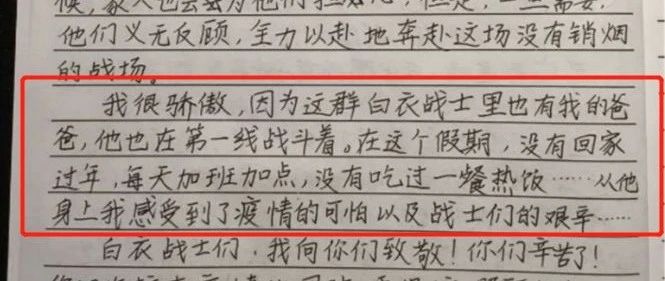 他们义无反顾,全力以赴地奔赴这场没有销烟
的战场。
我很骄傲,因为这群白衣战士里也有我的爸
爸,他也在第一线战斗着。在这个假期,没有回家
过年,每天加班加点,没有吃过一餐热饭……从他
身上我感受到了疫情的可怕以及战士们的艰辛……
白衣战士们,我向你们致敬!你们辛苦了!